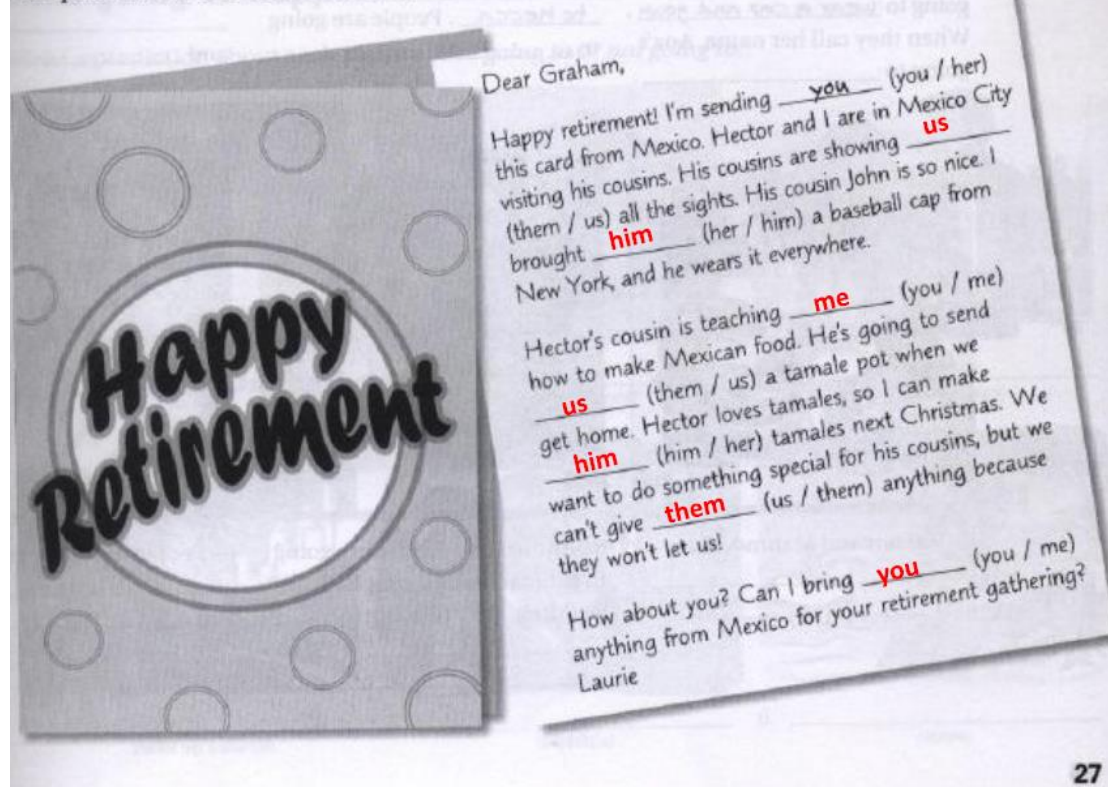 going to wear a cap and gown, to happen. People are going
When they call her name, Ana's
Happy
Retirement
Dear Graham,
Happy retirement! I'm sending you (you / her)
this card from Mexico. Hector and I are in Mexico City
visiting his cousins. His cousins are showing us
(them / us) all the sights. His cousin John is so nice. I
brought him (her / him) a baseball cap from
New York, and he wears it everywhere.
Hector's cousin is teaching me (you / me)
how to make Mexican food. He's going to send
us (them / us) a tamale pot when we
get home. Hector loves tamales, so I can make
him (him / her) tamales next Christmas. We
want to do something special for his cousins, but we
can't give them (us / them) anything because
they won't let us!
How about you? Can I bring you (you / me)
anything from Mexico for your retirement gathering?
Laurie
27